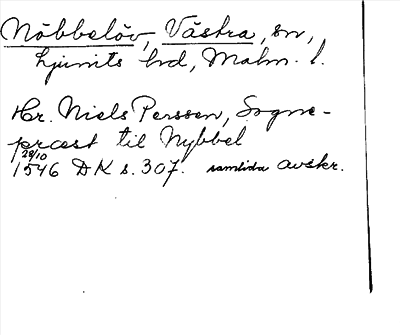 Nöbbelöv, Västra, sn,
Ljunits hd, Malm. l.
Hr. Niels Perssen, Sogne-
præst til Nybbel
28/10
1546 DK s. 307. samtida avskr.